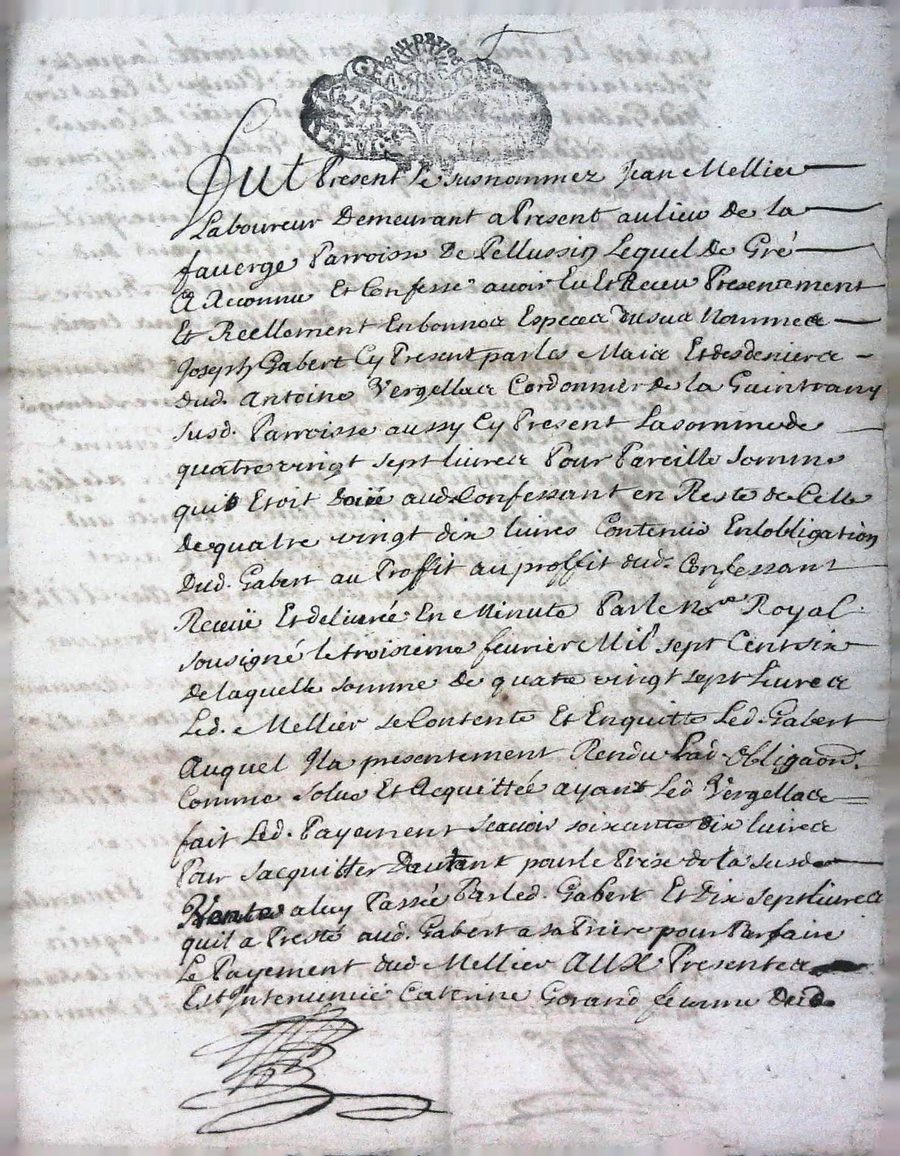 fut Present Le susnommez Jean Mellier
Laboureur Demeurant a Present au lieu de la
faverge Parroisse De Pellussin Lequel De Gré
A Reconnu Et Confesse avoir Eu Et Receu Presentement
Et Reellement En bonnes Especes du sus Nommes
Joseph Gabert Cy Present par les Mains Et des deniers
dud. Antoine Vergellas Cordonnier de la Guintrany
susd. Parroisse aussy Cy Present La somme de
quatre vingt sept livres Pour Pareille somme
quil Etoit aud. Confessant en Reste de Celle
de quatre vingt dix livres Contenue En lobligation
Dud. Gabert au Proffit au proffit dud. Confessant
Receüe Et delivrée En Minute Par le No.re Royal
sousigné le troisieme fevrier Mil sept Cent six
de laquelle somme de quatre vingt sept Livres
Led. Mellier se Contente Et En quitte Led. Gabert
Auquel Jl a presentement Rendu Lad. obligaon.
Comme Solue Et Acquittée ayant Led Vergellas
fait Led. Payement Scavoir soixante dix livres
Pour sacquitter Dautant pour le Prix de la susd.
Vente a luy Passée Par led. Gabert Et Dix sept livres
quil a Presté aud. Gabert a sa Priere pour Parfaire
Le Payement dud Mellier AUX Presentes
Est Intervenue Caterine Gorand femme Dud.